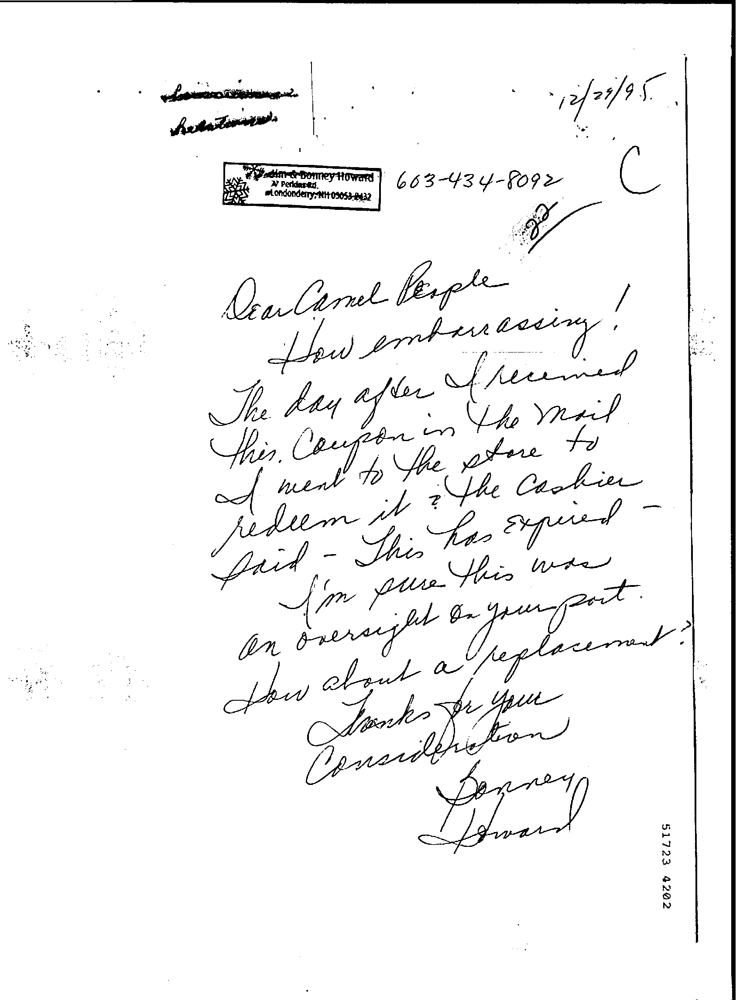 12/29/95.
Jim & Bonney Howard
Perkins Rd.
Londonderry, NH 03053-2432
603-434-8092
C
22
Dear Camel People
How embarrassing!
The day after I received
this. Coupon in the mail
I went to the store to
redeem it & the Cashier
said - This has expired -
I'm sure this was
an oversight on your part.
How about a replacement?
Thanks for your
Consideration
Bonney
Howard
51723 4202